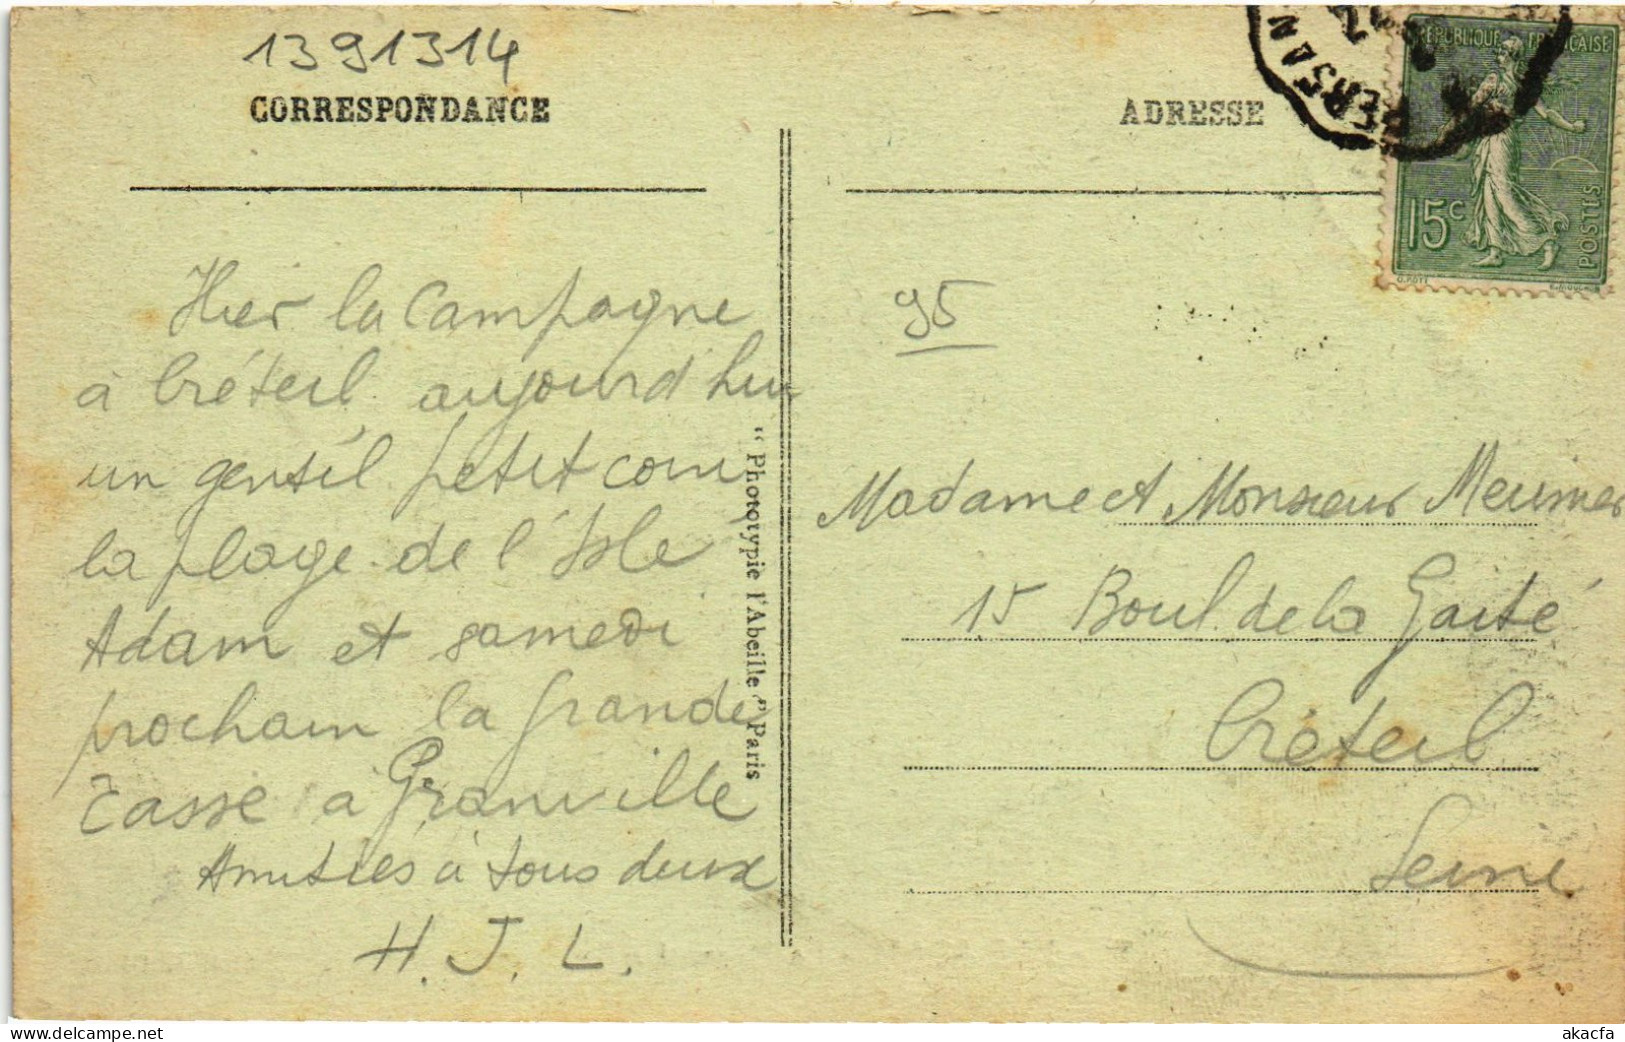 1391314
CORRESPONDANCE
Hier la Campagne
à Créteil aujourd'hui
un gentil petit coin
la plage de l'Isle
Adam et samedi
prochain la grande
Tasse à Granville
Amitiés à tous deux
H. J. L.
"Photoypie l'Abeille" Paris
ADRESSE
PERSAN
REPUBLIQUE FRANÇAISE
15c
POSTES
95
Madame et Monsieur Meunier
15 Boul. de la Gaité
Créteil
Seine
akacfa